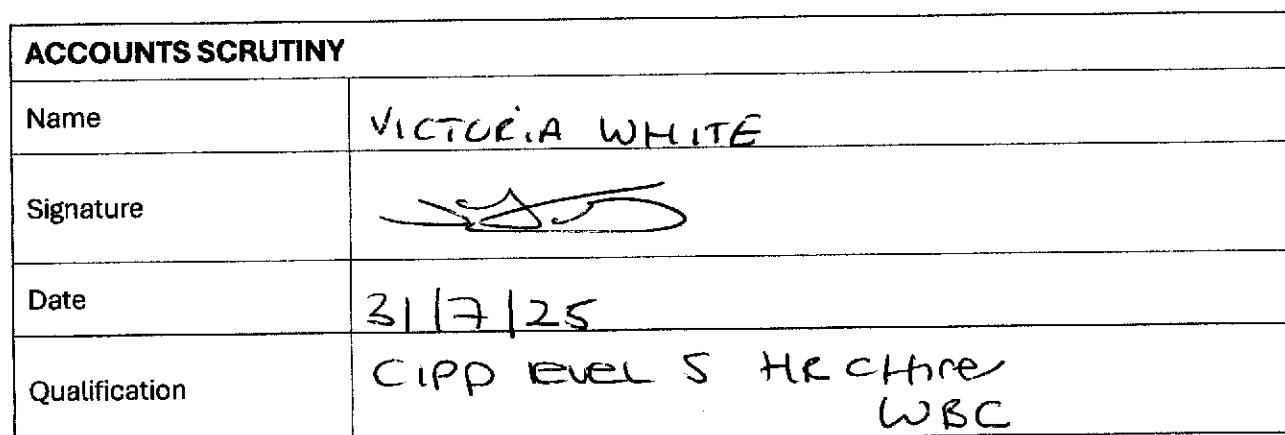 ACCOUNTS SCRUTINY
Name VICTORIA WHITE
Signature
Date 31/7/25
Qualification CIPD level 5 HR
WBC